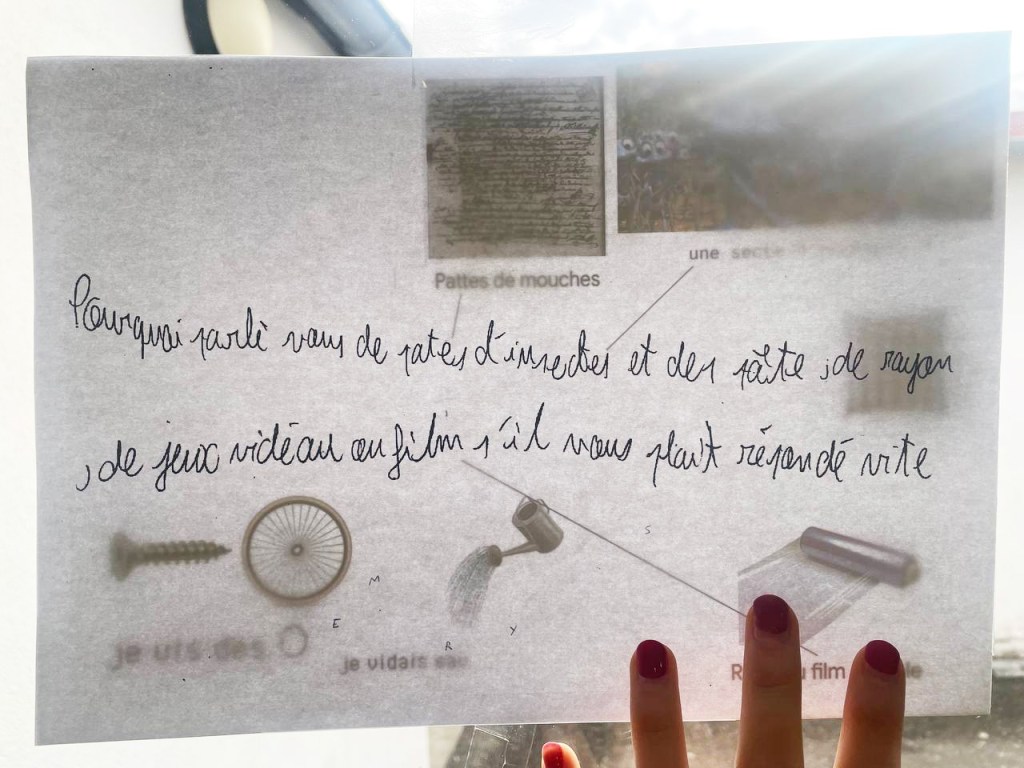 une secte
Pattes de mouches
Pourquoi parlè vous de pates d'insectes et des pâte , de rayon
, de jeux vidéau ou film s'il vous plaît répondé vite
S
M
E
Y
R
je vis des O
je vidais eau
film